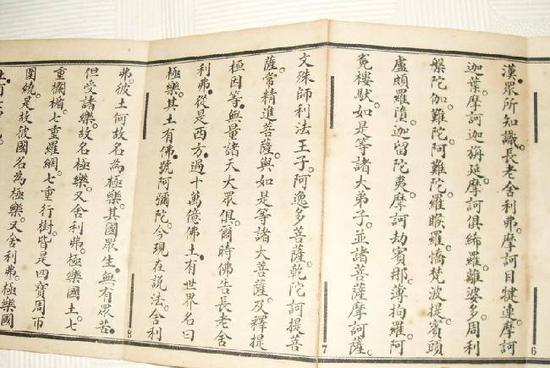 6
漢眾所知識。長老舍利弗。摩訶目犍連。摩訶
迦葉。摩訶迦旃延。摩訶俱絺羅。離婆多。周利
槃陀伽。難陀。阿難陀。羅睺羅。憍梵波提。賓頭
盧頗羅墮。迦留陀夷。摩訶劫賓那。薄拘羅。阿
㝹樓馱。如是等諸大弟子。並諸菩薩摩訶薩。
7
文殊師利法王子。阿逸多菩薩。乾陀訶提菩
薩。常精進菩薩。與如是等諸大菩薩。及釋提
桓因等。無量諸天大眾俱。爾時佛告長老舍
利弗。從是西方。過十萬億佛土。有世界名曰
極樂。其土有佛。號阿彌陀。今現在說法。舍利
8
弗。彼土何故名為極樂。其國眾生。無有眾苦。
但受諸樂。故名極樂。又舍利弗。極樂國土。七
重欄楯。七重羅網。七重行樹。皆是四寶周帀
圍繞。是故彼國名為極樂。又舍利弗。極樂國
土有